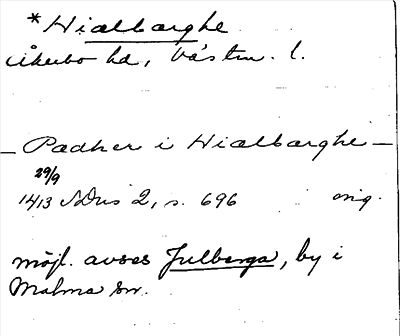 *Hialbarghe
Åkerbo hd, Västm. l.
— Padher i Hialbarghe —
29/9
1413 SDns 2, s. 696 orig.
möjl. avses Julberga, by i
Malma sn.